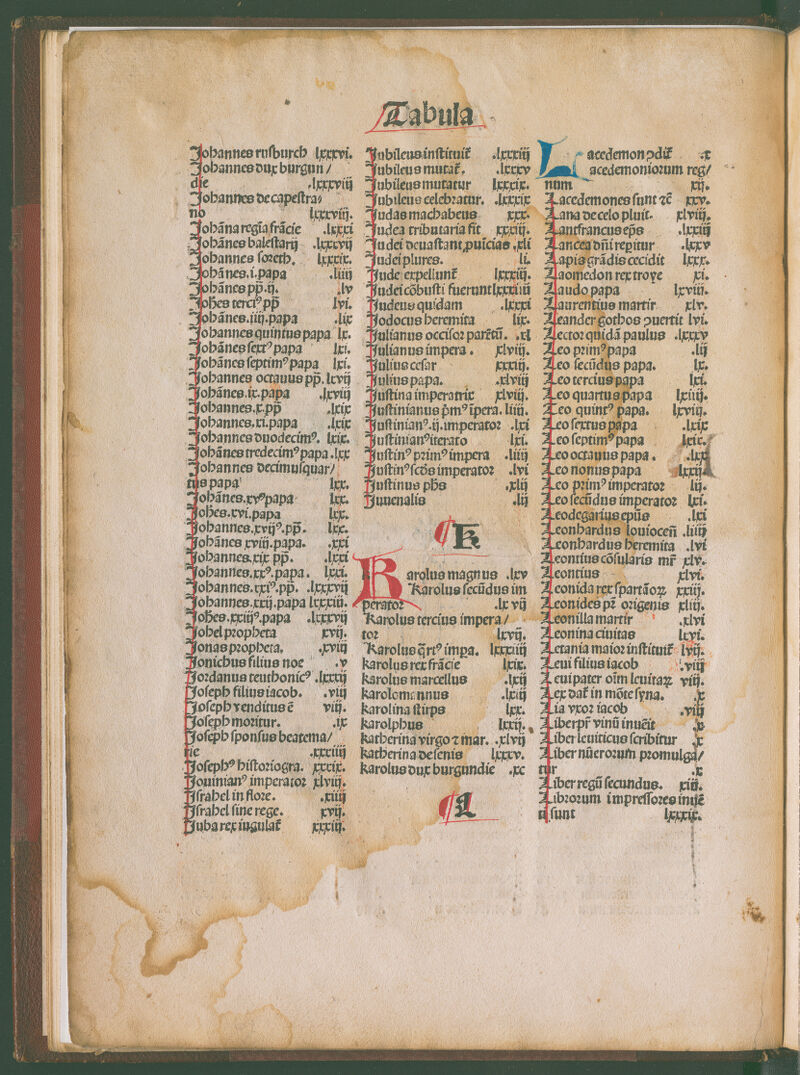 Tabula
Johannes rusburch lxxxvi.
Johannes dux burgun/
die .lxxxviij
Johannes de capestra/
no lxxxviij.
Johāna regīa frācie .lxxxi
Johānes balestarij .lxxxvij
Johannes soreth. lxxxix.
Johānes.i.papa .liiij
Johānes pp̄.ij. .lv
Joh̄es terciꝰ pp̄ lvi.
Johānes.iiij.papa .lix
Johannes quintus papa lx.
Johānes sextꝰ papa lxi.
Johānes septimꝰ papa lxi.
Johannes octauus pp̄. lxvij
Johānes.ix.papa .lxviij
Johannes.x.pp̄ .lxix
Johannes.xi.papa .lxix
Johannes duodecimꝰ. lxix.
Johānes tredecimꝰ papa .lxx
Johannes decimusquar/
tus papa lxx.
Johānes.xvꝰ papa lxx.
Joh̄es.xvi.papa lxx.
Johannes.xvijꝰ.pp̄. lxx.
Johānes xviij.papa. .lxxi
Johannes.xix pp̄. .lxxi
Johannes.xxꝰ.papa. lxxi.
Johannes.xxiꝰ.pp̄. .lxxxvij
Johannes.xxij.papa lxxxiij.
Joh̄es.xxiijꝰ.papa .lxxxvij
Johel propheta xvij.
Jonas propheta. .xviij
Jonichus filius noe .v
Jordanus teuthonicꝰ .lxxxij
Joseph filius iacob. .viij
Joseph venditus ē viij.
Joseph moritur. .ix
Joseph sponsus beate ma/
rie .xxxiiij
Josephꝰ historiogra. xxxix.
Jouinianꝰ imperator xlviij.
Israhel in flore. .xiiij
Israhel sine rege. xvij.
Juba rex iugulat̄ xxxiij.
Jubileus instituit̄ .lxxxiij
Jubileus mutat̄. .lxxxv
Jubileus mutatur lxxxix.
Jubileus celebratur. .lxxxix
Judas machabeus xxx.
Judea tributaria fit xxxiij.
Judei deuastant ꝓuīcias .xli
Judei plures. li.
Jude expellunt̄ lxxxiij.
Judei cōbusti fuerunt lxxxiiij
Judeus quidam .lxxxi
Jodocus heremita lix.
Julianus occisor parētū. .xl
Julianus impera. xlviij.
Julius cesar xxxiij.
Julius papa. .xlviij
Justina imperatrix xlviij.
Justinianus p̄mꝰ īpera. liiij.
Justinianꝰ.ij.imperator .lxi
Justinianꝰ iterato lxi.
Justinꝰ primꝰ impera .liiij
Justinꝰ scd̄s imperator .lvi
Justinus ph̄s .xlij
Juuenalis .lij
K
Karolus magnus .lxv
Karolus secūdus im
perator .lx vij
Karolus tercius impera/
tor lxvij.
Karolus q̄rtꝰ imꝑa. lxxxiij
karolus rex frācie lxix.
karolus marcellus .lxij
karolomannus .lxiij
karolina stirps lxx.
karolphus lxxij.
katherina virgo ⁊ mar. .xlvij
katherina de senis lxxxv.
karolus dux burgundie .xc
L
Lacedemon ꝯdit̄ .x
Lacedemoniorum reg/
num xij.
Lacedemones sunt ⁊c̄ xxv.
Lana de celo pluit. xlviij.
Lantfrancus ep̄s .lxxiij
Lancea dn̄i repitur .lxxv
Lapis grādis cecidit lxxx.
Laomedon rex troye xi.
Laudo papa lxviij.
Laurentius martir xlv.
Leander gothos ꝯuertit lvi.
Lector quidā paulus .lxxxv
Leo primꝰ papa .lij
Leo secūdus papa. lx.
Leo tercius papa lxi.
Leo quartus papa lxiij.
Leo quintꝰ papa. lxviij.
Leo sextus papa .lxix
Leo septimꝰ papa lxix.
Leo octauus papa. .lxx
Leo nonus papa .lxxij
Leo primꝰ imperator lij.
Leo secūdus imperator lxi.
Leodegarius ep̄us .lxi
Leonhardus louiocen̄ .liiij
Leonhardus heremita .lvi
Leontius cōsularis mr̄ xlv.
Leontius xlvi.
Leonida rex spartāoꝝ xxiij.
Leonides pr̄ origenis xliij.
Leonilla martir .xlvi
Leonina ciuitas lxvi.
Letania maior instituit̄ lvij.
Leui filius iacob .viij
Leui pater oīm leuitaꝝ viij.
Lex dat̄ in mōte syna. .x
Lia vxor iacob .viij
Liber pr̄ vinū inuēit .x
Liber leuiticus scribitur .x
Liber nūerorum promulga/
tur .x
Liber regū secundus. xiij.
Librorum impressores inijē
ti sunt lxxxix.